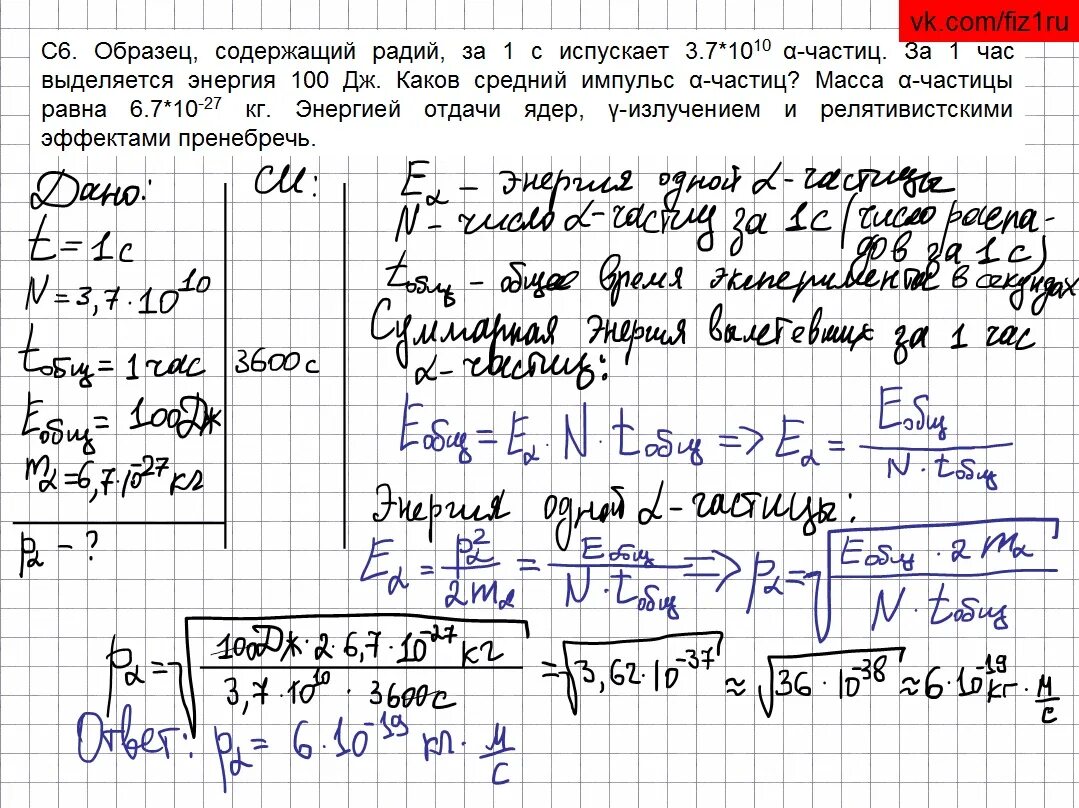 vk.com/fiz1ru
С6. Образец, содержащий радий, за 1 с испускает 3.7*10¹⁰ α-частиц. За 1 час
выделяется энергия 100 Дж. Каков средний импульс α-частиц? Масса α-частицы
равна 6.7*10⁻²⁷ кг. Энергией отдачи ядер, γ-излучением и релятивистскими
эффектами пренебречь.
Дано:
t = 1 с
N = 3,7 · 10¹⁰
tобщ = 1 час
Eобщ = 100Дж
mα = 6,7·10⁻²⁷ кг
pα - ?
СИ:
3600 с
Eα – энергия одной α-частицы
N – число α-частиц за 1 с (число распа-
дов за 1 с)
tобщ – общее время эксперимента в секундах
Суммарная энергия вылетевших за 1 час
α-частиц:
Eобщ = Eα · N · tобщ => Eα = Eобщ / (N · tобщ)
Энергия одной α-частицы:
Eα = pα² / 2mα = Eобщ / (N · tобщ) => pα = √(Eобщ · 2mα / (N · tобщ))
pα = √(100Дж · 2 · 6,7 · 10⁻²⁷ кг / (3,7 · 10¹⁰ · 3600с)) = √(3,62 · 10⁻³⁷) ≈ √(36 · 10⁻³⁸) ≈ 6 · 10⁻¹⁹ кг · м/с
Ответ: pα = 6 · 10⁻¹⁹ кг · м/с